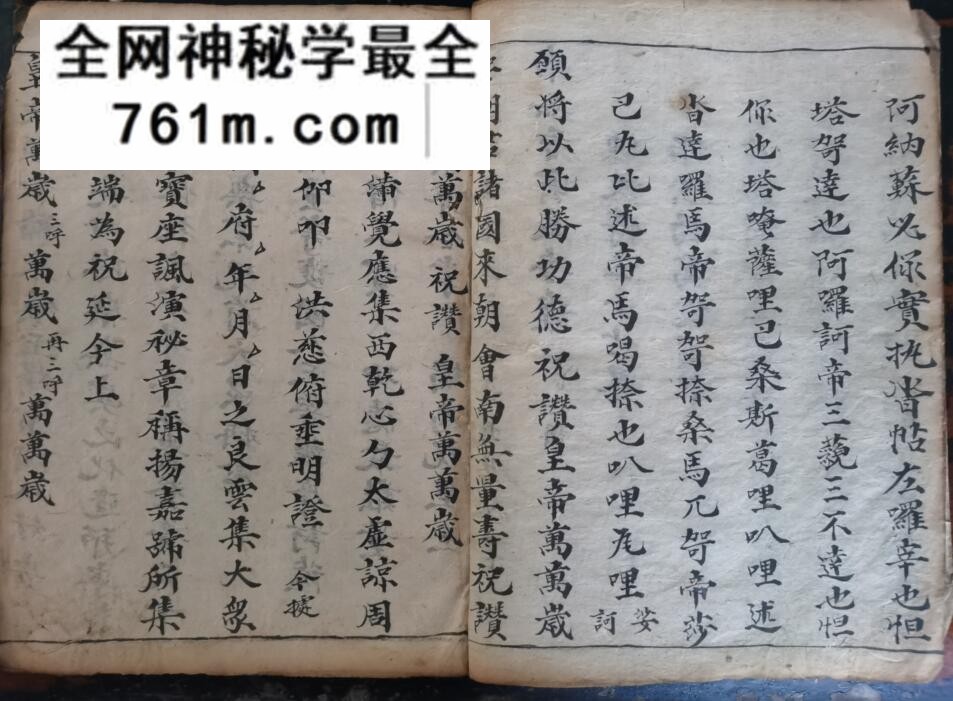 全网神秘学最全
761m.com
阿納蘇必你實执沓帖左囉宰也怛
塔哿達也阿羅訶帝三藐三不達也怛
你也塔唵薩哩巴桑斯葛哩叭哩述
沓達羅馬帝哿哿捺桑馬兀哿帝莎
巴瓦比述帝馬喝捺也叭哩瓦哩娑訶
願將以此勝功德祝讚皇帝萬萬歲
諸國來朝會南無量壽祝讚
萬歲祝讚皇帝萬萬歲
覺應集西乾心勺太虛諒周
仰叩洪慈俯垂明證今據
府年月日之良雲集大衆
寶座諷演秘章稱揚嘉號所集
端為祝延今上
皇帝萬歲三呼萬歲再三呼萬萬歲